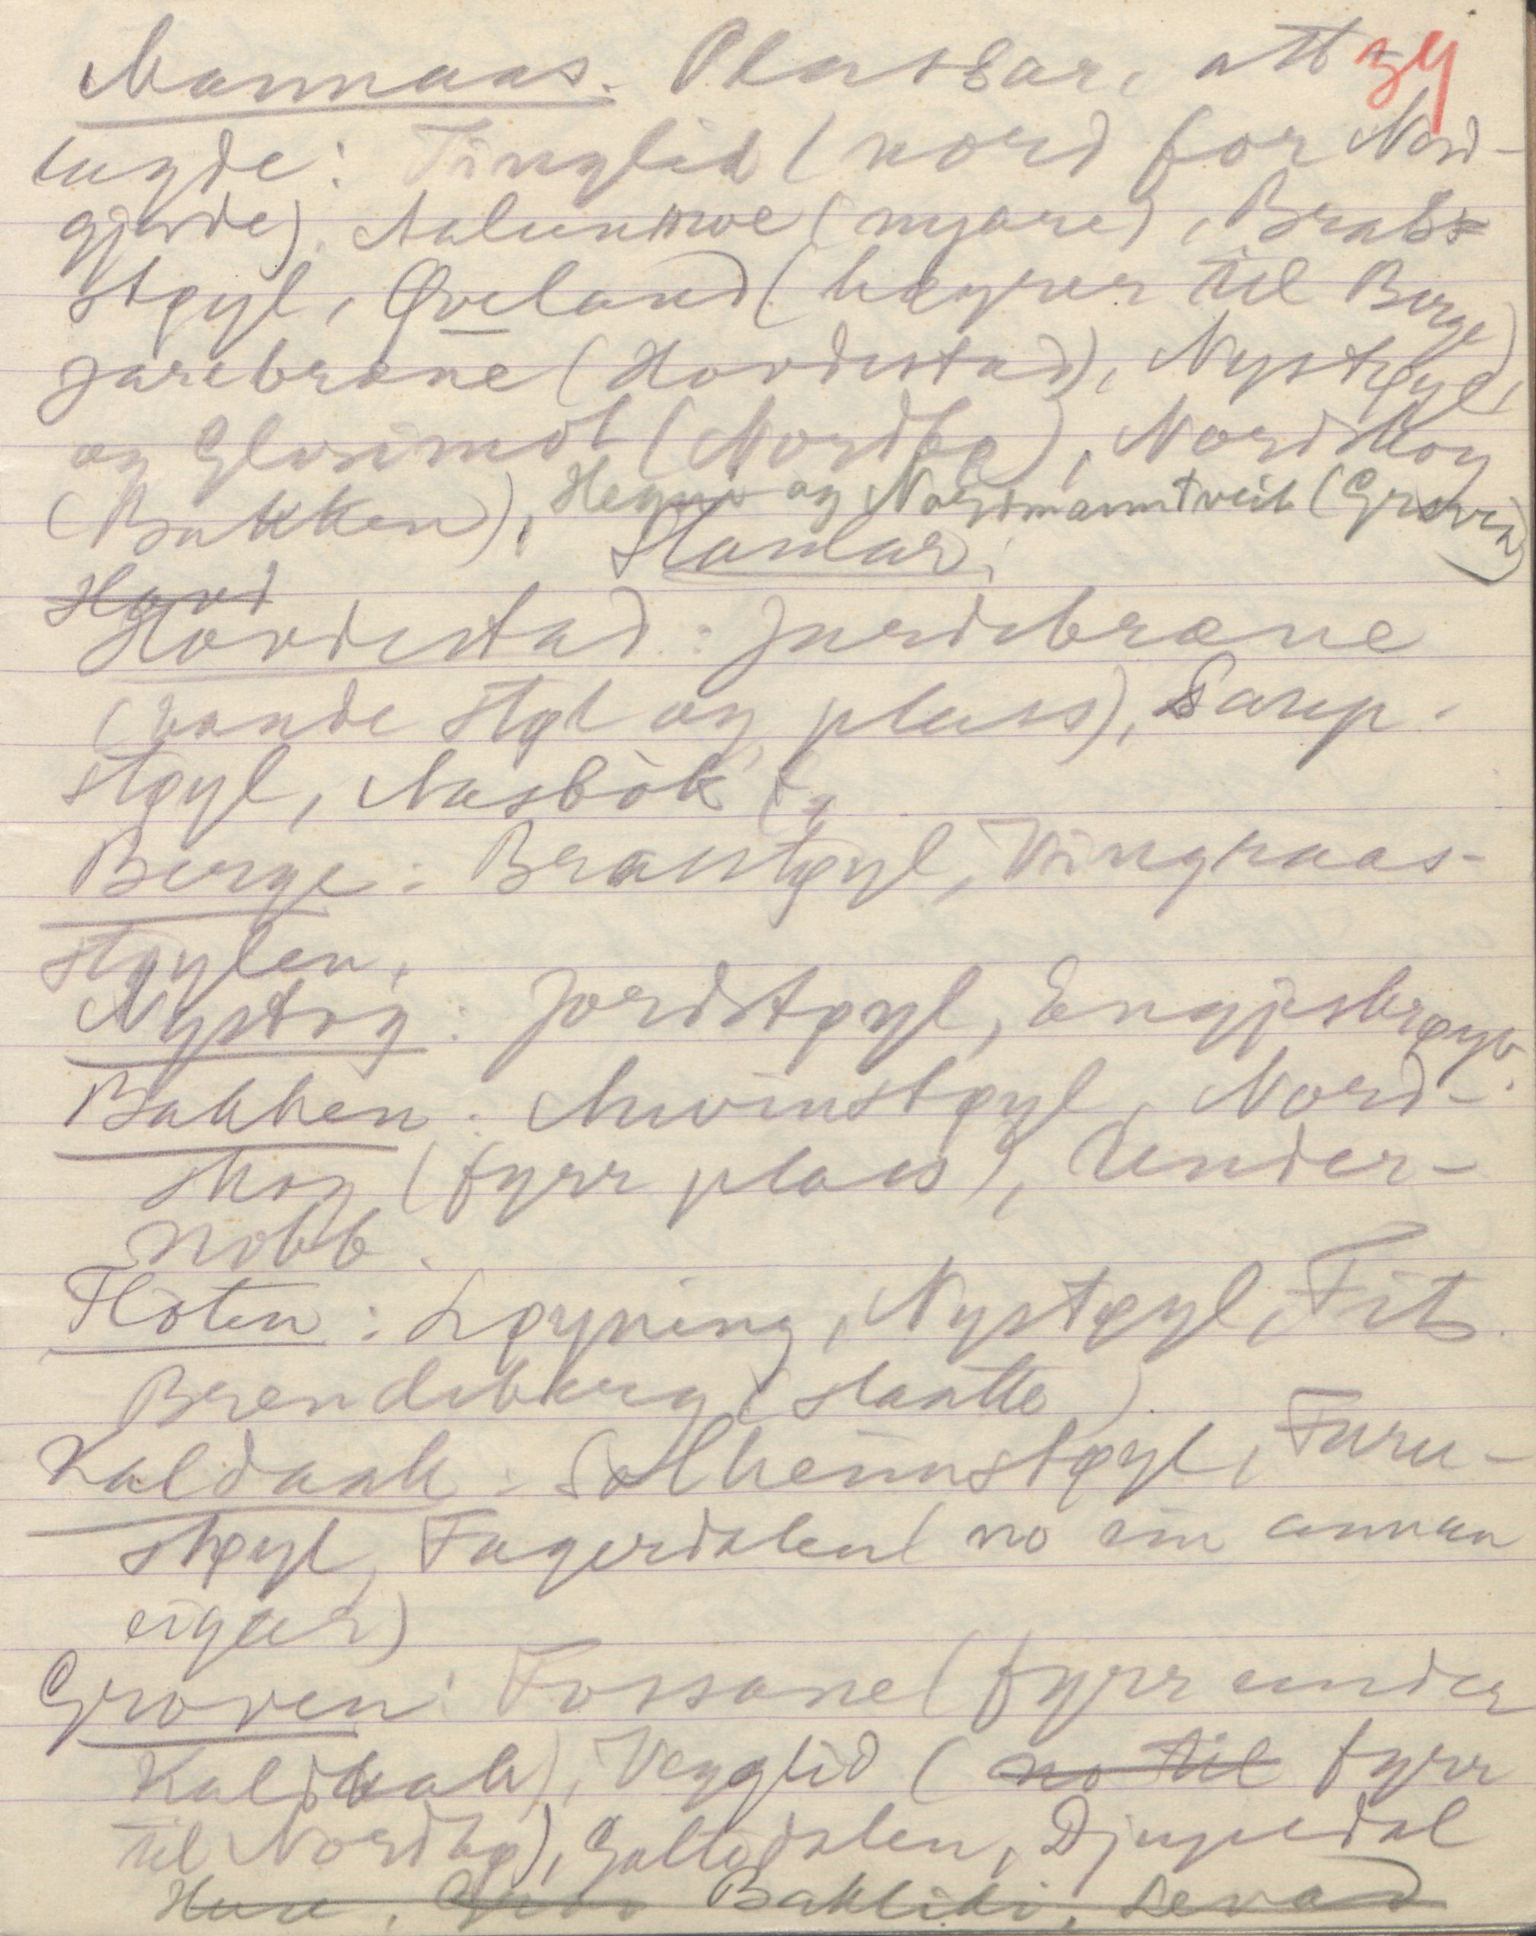 Mannaas. Plassar, att 39
lagde: Tinglid (nord for Nord-
gjerde), (nyare), Brak-
støyl, Øveland (høyrer til Berge)
Jarebrane (Hovdestad), Nystøyl,
og Glosimot (Nordbø), Nordskog
(Bakken), og Nordmanntveit (Groven)
Stanlar.
Hovd
Hovdestad: Jardebræne
(baade støl og plass), Sarp-
støyl, Nasbök
Berge: Brakstøyl, Vingraas-
støylen.
Nystog: Jordstøyl, Engjesbrøyt.
Bakken: støyl, Nord-
skog (fyrr plass), Under-
nobb.
Floten: Løyning, Nystøyl, Fit,
Brendeberg (slaatte).
Kaldaak: Solheimstøyl, Furu-
støyl, Fagerdalen (no ein annan
eigar)
Groven: Fossane (fyrr under
Kaldaak), Vegglid (no til fyrr
til Nordbø), Galtedalen, Djupedal
Baklidi, Levad